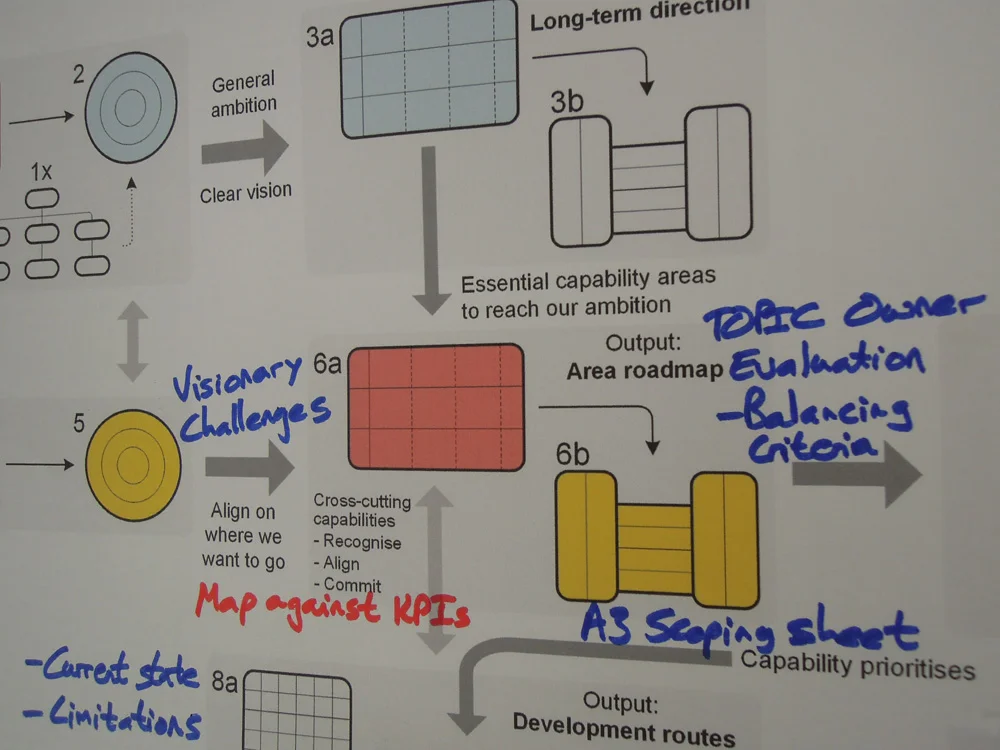 Long-term direction
3a
2
General
ambition
3b
1x
Clear vision
Essential capability areas
to reach our ambition
TOPIC Owner
Evaluation
- Balancing
Criteria
Output:
Area roadmap
Visionary
Challenges
6a
5
6b
Cross-cutting
capabilities
- Recognise
- Align
- Commit
Align on
where we
want to go
Map against KPIs
A3 Scoping sheet
Capability prioritises
- Current state
- Limitations
8a
Output:
Development routes